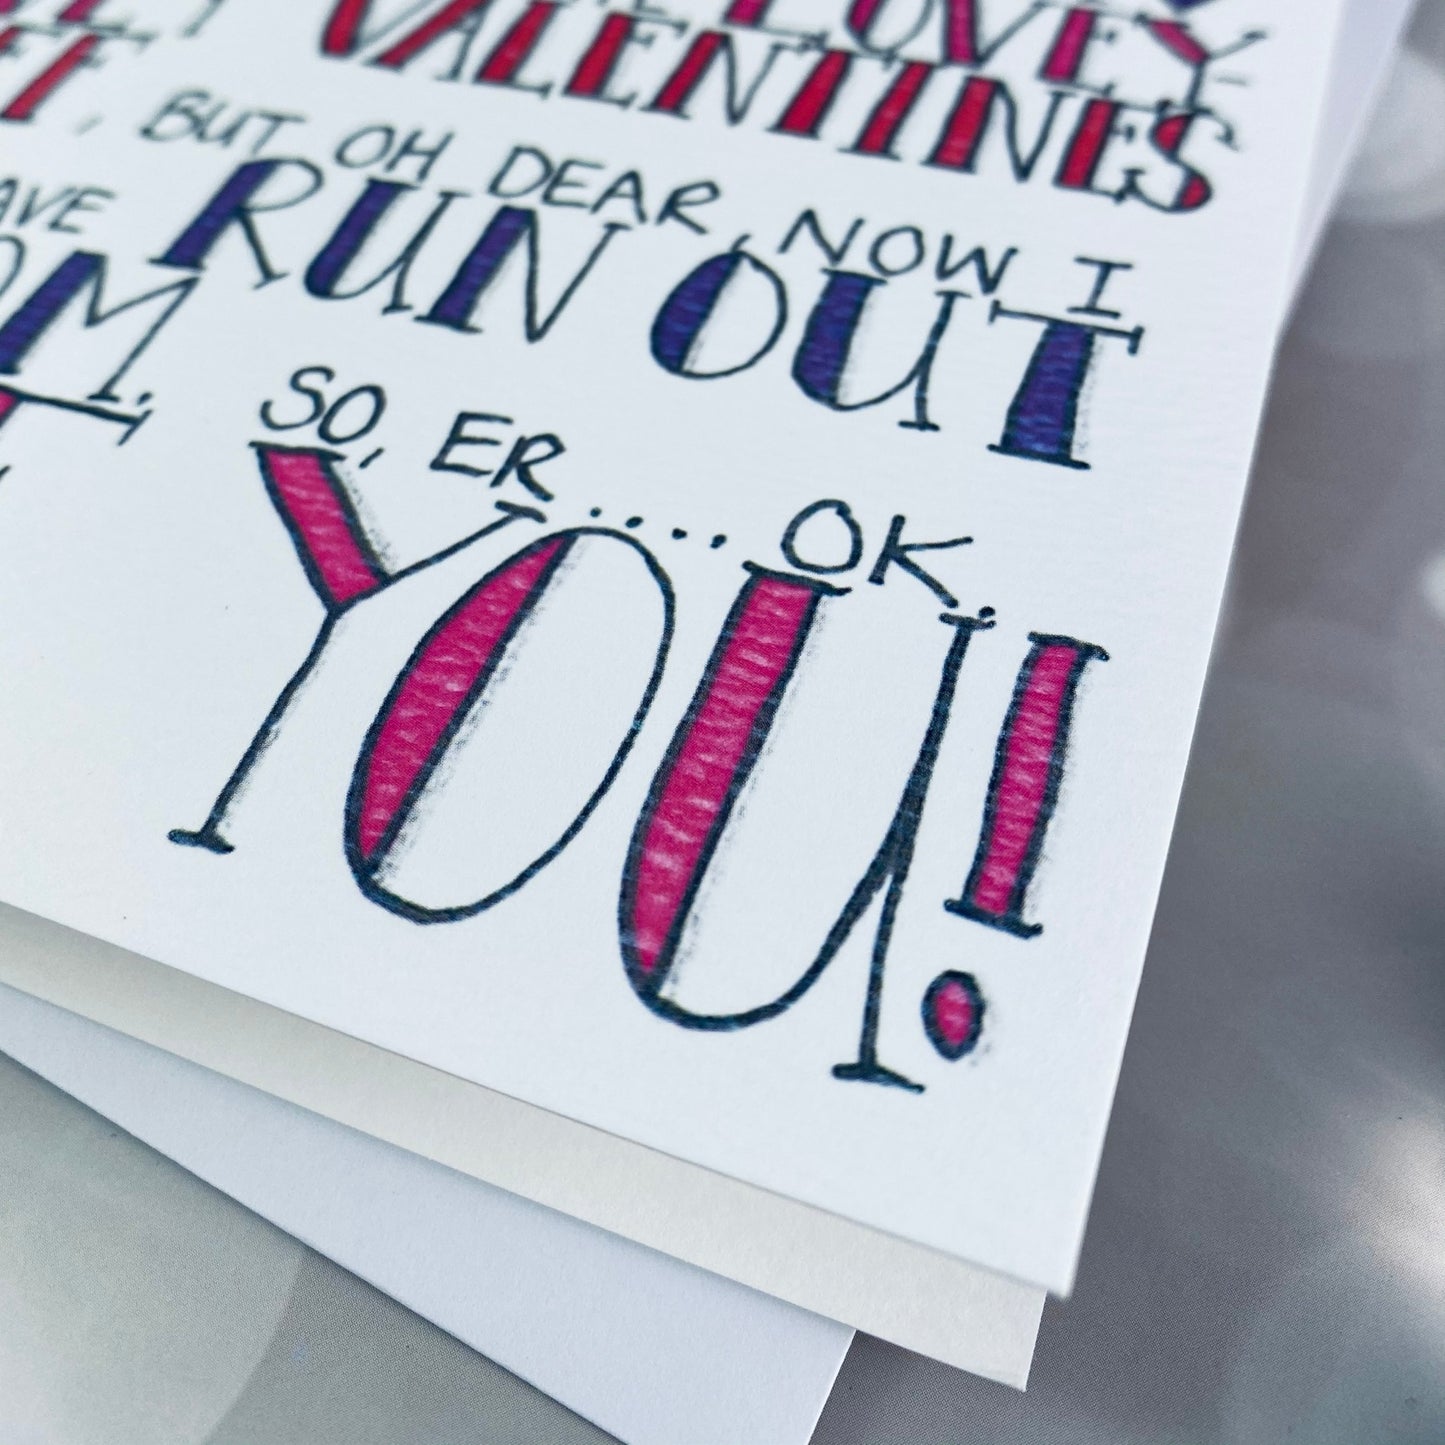 LOVEY
VALENTINES
, BUT OH DEAR, NOW I
AVE RUN OUT
OM,
SO, ER .... OK.
YOU!